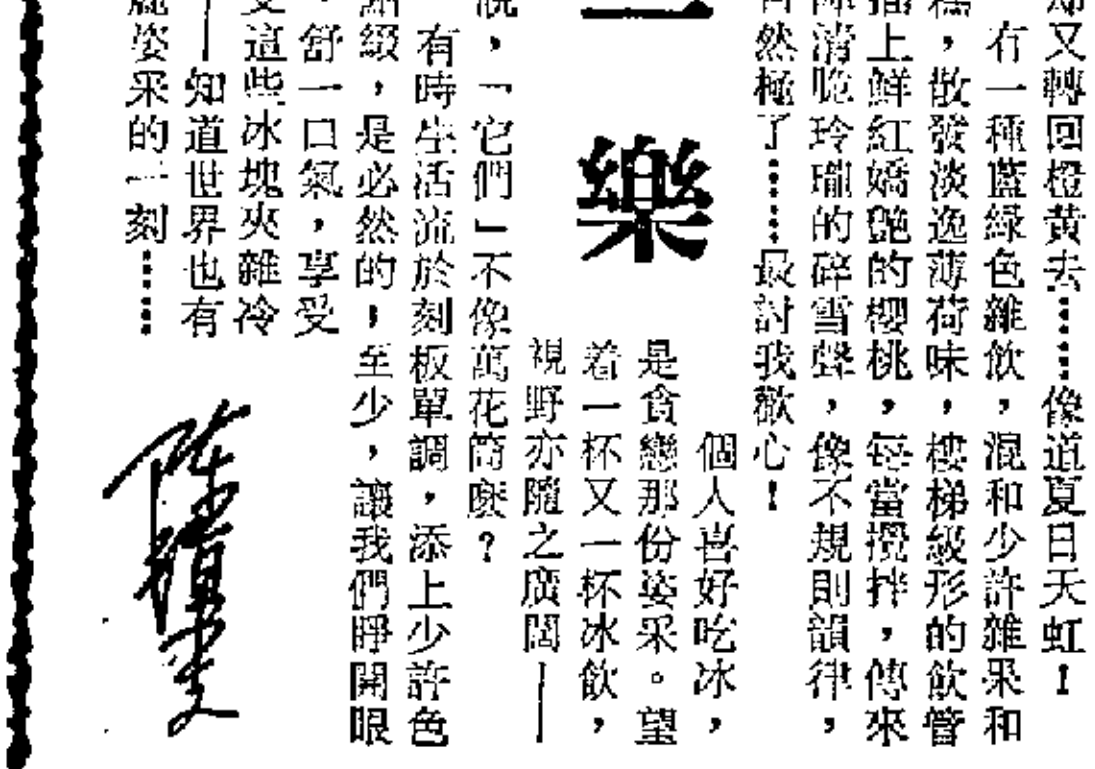 却又轉回橙黄去……像道夏日天虹！
有一種藍綠色雜飲，混和少許雜果和
糕，散發淡逸薄荷味，樓梯級形的飲管
插上鮮紅嬌艷的櫻桃，每當攪拌，傳來
陣清脆玲瓏的碎雪聲，像不規則韻律，
然極了……最討我歡心！
一樂
個人喜好吃冰，
是貪戀那份姿采。望
着一杯又一杯冰飲，
視野亦隨之廣闊——
說，「它們」不像萬花筒麽？
有時生活流於刻板單調，添上少許色
點綴，是必然的；至少，讓我們睜開眼
，舒一口氣，享受
這些冰塊夾雜冷
——知道世界也有
麗姿采的一刻……